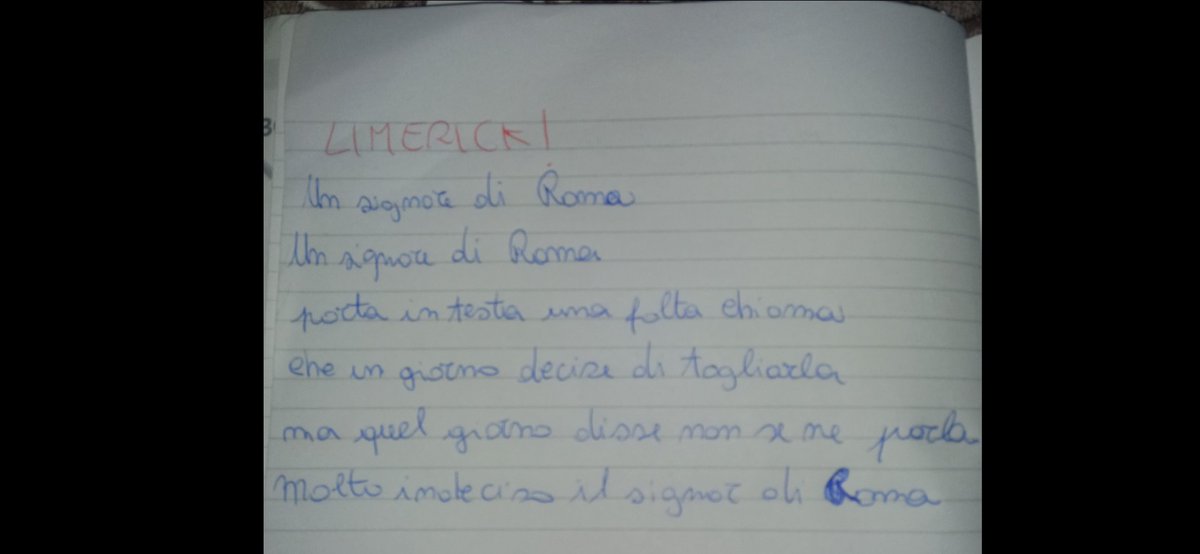 LIMERICK!
Un signore di Roma
Un signore di Roma
porta in testa una folta chioma
che un giorno decise di tagliarla
ma quel giorno disse non se ne parla
Molto indeciso il signor di Roma